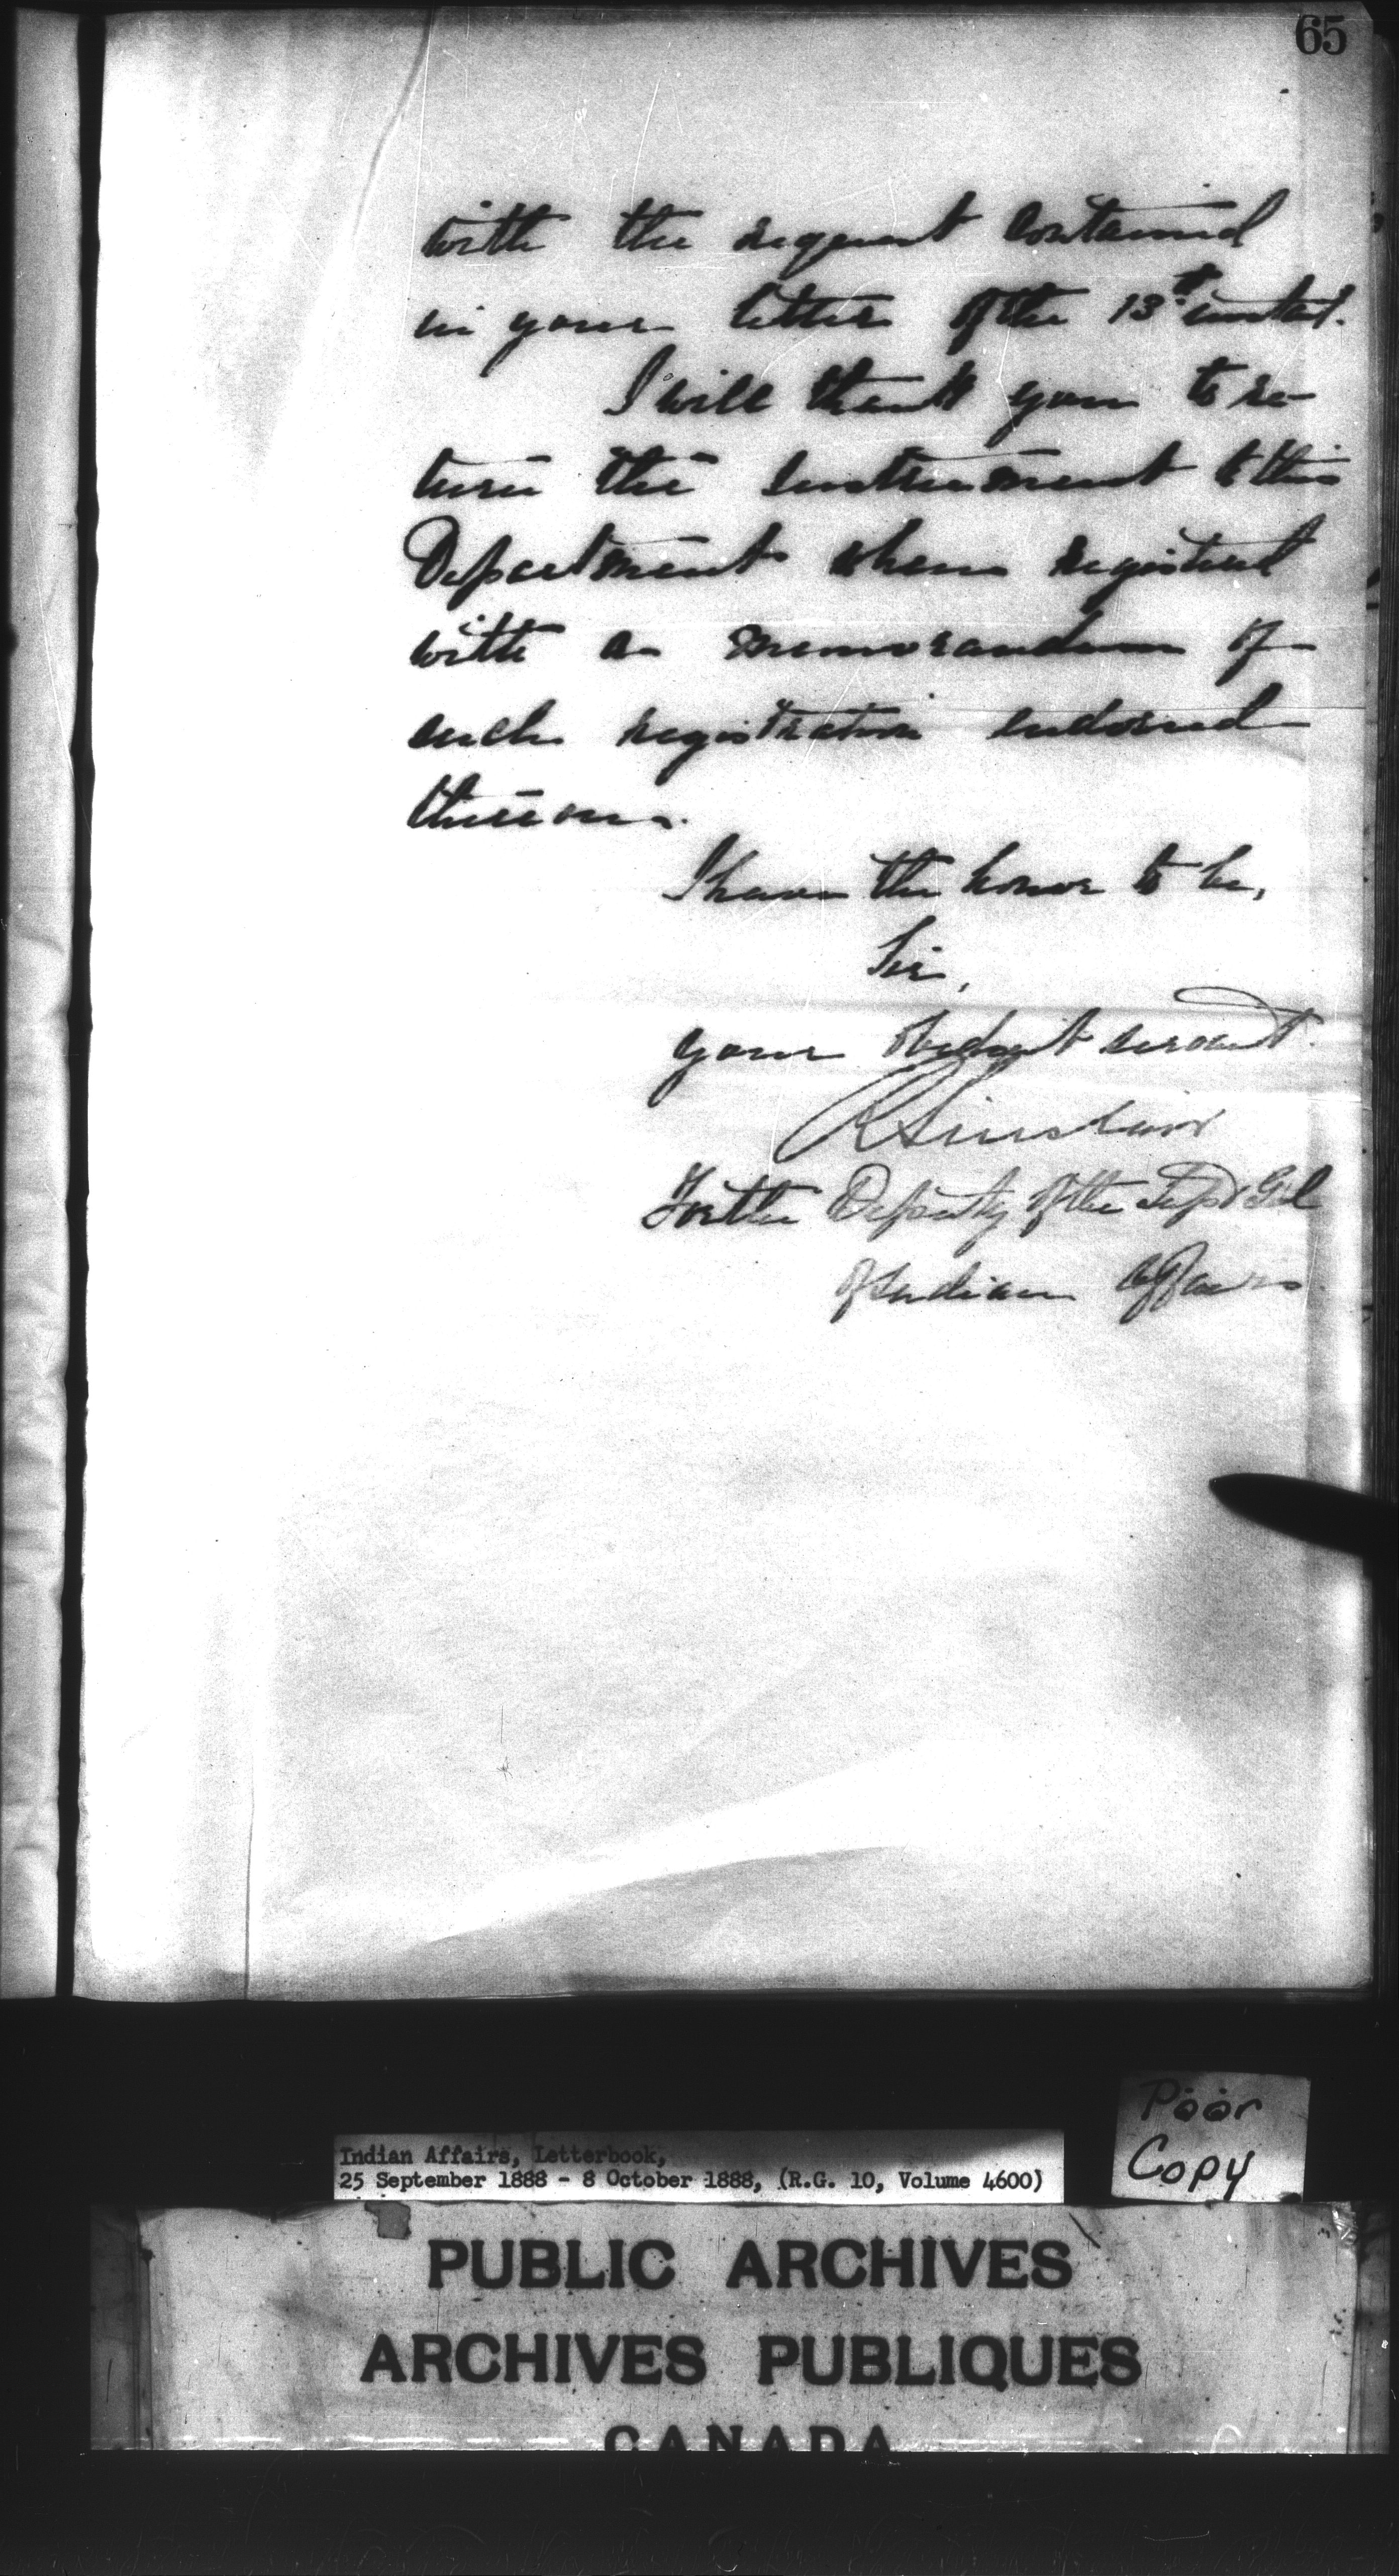 65
with the request contained
in your letter of the 13th instant.
I will thank you to re-
turn the instrument to this
Department when registered
with a memorandum of
such registration endorsed
thereon.
I have the honor to be,
Sir,
your obedient servant.
R Sinclair
For the Deputy of the Supt Genl
of Indian Affairs
Poor
Copy
Indian Affairs, Letterbook,
25 September 1888 - 8 October 1888, (R.G. 10, Volume 4600)
PUBLIC ARCHIVES
ARCHIVES PUBLIQUES
CANADA